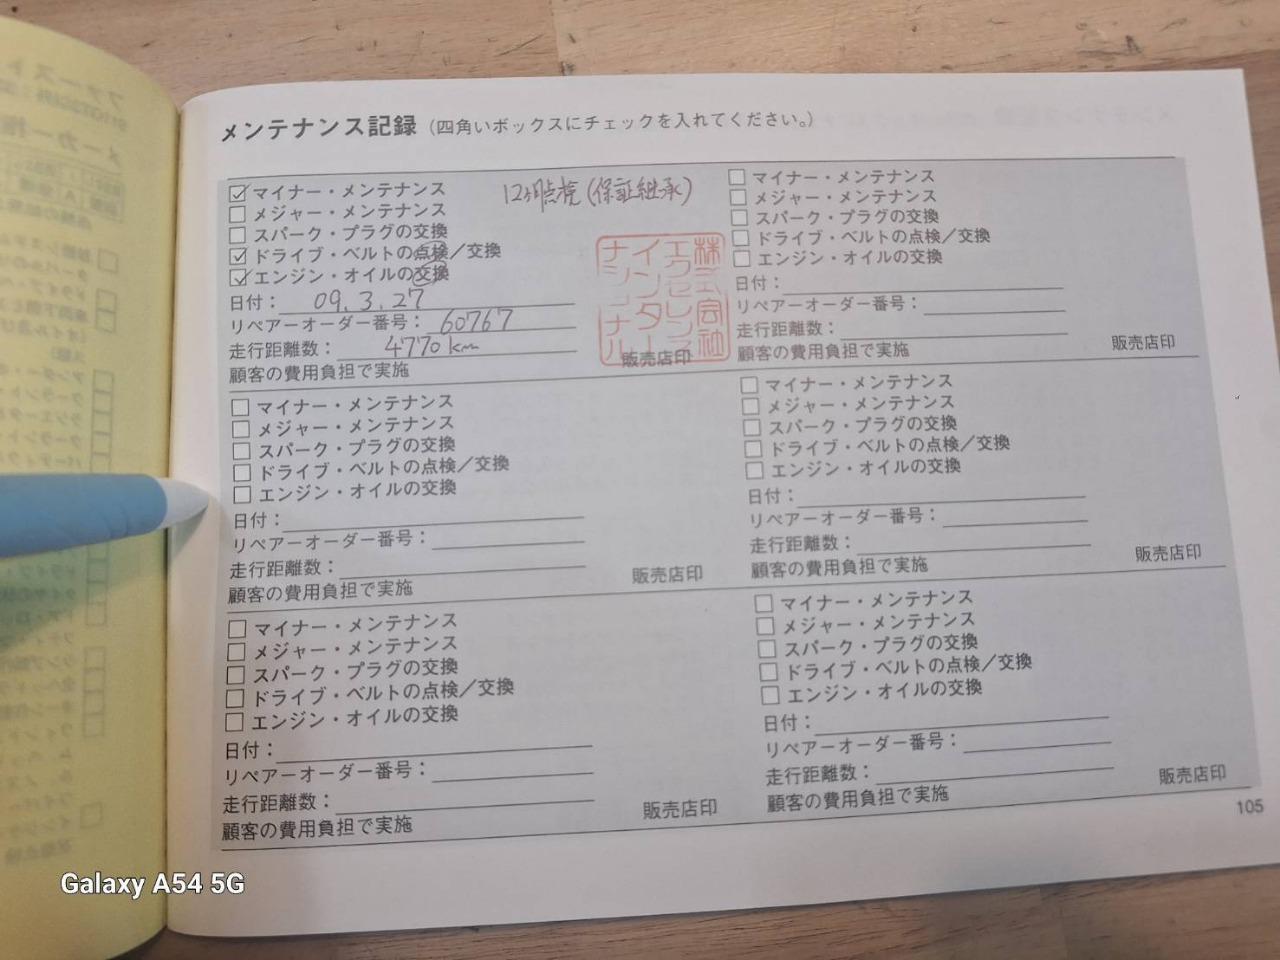 メンテナンス記録（四角いボックスにチェックを入れてください。）
マイナー・メンテナンス 12ヶ月点検(保証継承)
メジャー・メンテナンス
スパーク・プラグの交換
ドライブ・ベルトの点検／交換
エンジン・オイルの交換
日付： 09.3.27
リペアーオーダー番号： 60767
走行距離数： 4770km
顧客の費用負担で実施
販売店印
株式会社
エクセレンス
インター
ナショナル
マイナー・メンテナンス
メジャー・メンテナンス
スパーク・プラグの交換
ドライブ・ベルトの点検／交換
エンジン・オイルの交換
日付：
リペアーオーダー番号：
走行距離数：
顧客の費用負担で実施
販売店印
マイナー・メンテナンス
メジャー・メンテナンス
スパーク・プラグの交換
ドライブ・ベルトの点検／交換
エンジン・オイルの交換
日付：
リペアーオーダー番号：
走行距離数：
顧客の費用負担で実施
販売店印
マイナー・メンテナンス
メジャー・メンテナンス
スパーク・プラグの交換
ドライブ・ベルトの点検／交換
エンジン・オイルの交換
日付：
リペアーオーダー番号：
走行距離数：
顧客の費用負担で実施
販売店印
マイナー・メンテナンス
メジャー・メンテナンス
スパーク・プラグの交換
ドライブ・ベルトの点検／交換
エンジン・オイルの交換
日付：
リペアーオーダー番号：
走行距離数：
顧客の費用負担で実施
販売店印
マイナー・メンテナンス
メジャー・メンテナンス
スパーク・プラグの交換
ドライブ・ベルトの点検／交換
エンジン・オイルの交換
日付：
リペアーオーダー番号：
走行距離数：
顧客の費用負担で実施
販売店印
105
Galaxy A54 5G